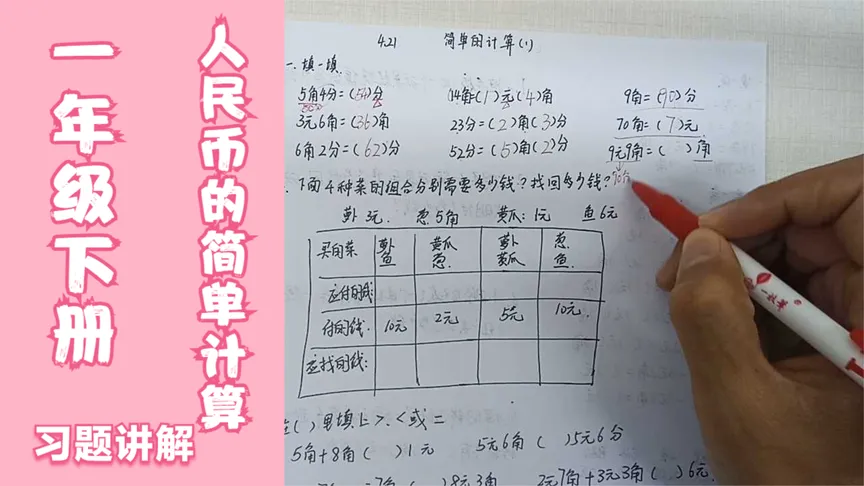 一年级下册
人民币的简单计算
习题讲解
4.21 简单的计算(1)
一.填一填.
5角4分=(54)分 14角=(1)元(4)角 9角=(90)分
3元6角=(36)角 23分=(2)角(3)分 70角=(7)元
6角2分=(62)分 52分=(5)角(2)分 9元9角=( )角
90角
下面4种菜的组合分别需要多少钱?找回多少钱?
萝卜3元. 葱.5角 黄瓜:1元 鱼6元
买的菜 萝卜鱼 黄瓜葱. 萝卜黄瓜 葱.鱼.
应付的钱
付的钱. 10元 2元 5元 10元.
应找的钱:
在( )里填上>.<或=
5角+8角( )1元 5元6角( )5元6分
7角( )8元3角 2元7角+3元3角( )6元.